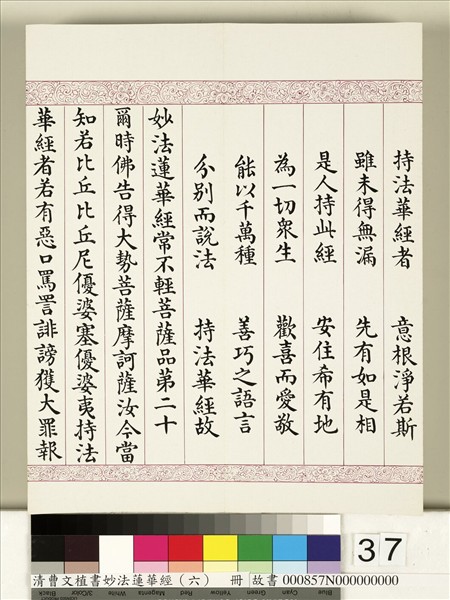 持法華經者　意根淨若斯
雖未得無漏　先有如是相
是人持此經　安住希有地
為一切衆生　歡喜而愛敬
能以千萬種　善巧之語言
分別而說法　持法華經故
妙法蓮華經常不輕菩薩品第二十
爾時佛告得大勢菩薩摩訶薩汝今當
知若比丘比丘尼優婆塞優婆夷持法
華經者若有惡口罵詈誹謗獲大罪報
37
Black
3/Color
White
Magenta
Red
Yellow
Green
Cyan
Blue
清曹文植書妙法蓮華經（六）　冊　故書 000857N000000000